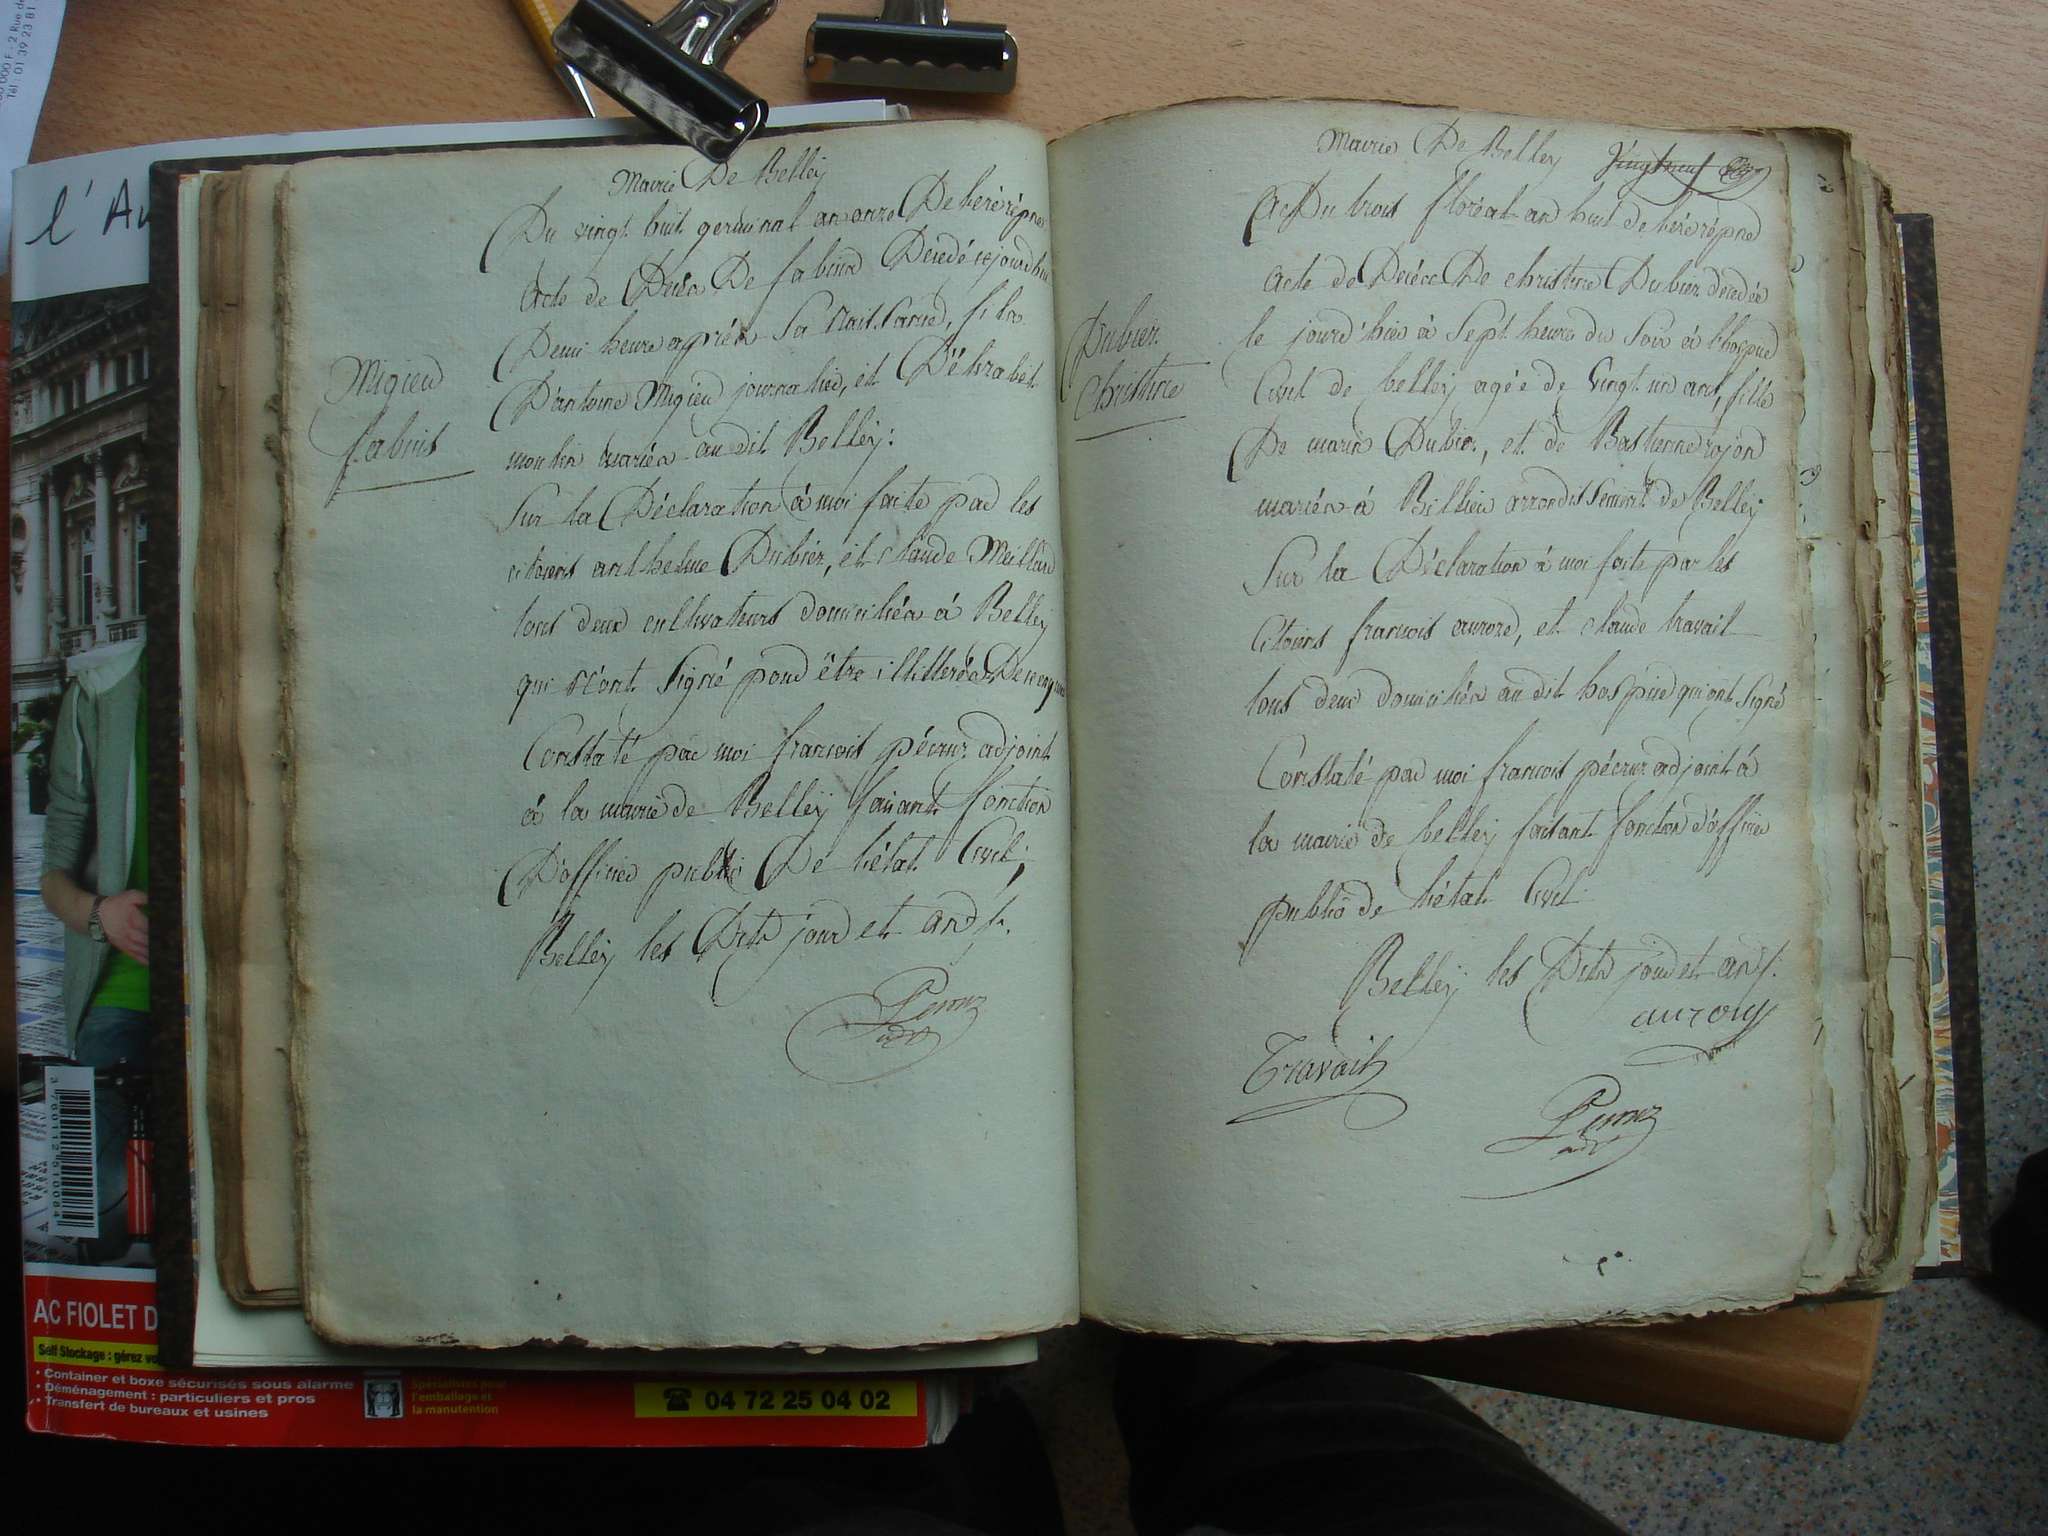 Mairie De Belley
Du vingt huit germinal an onze De l'ére répne
Acte de Décés De fabins Decedé cejourdhui
Demi heure aprés Sa Naissance, fils
D'antoine Migieu journalier, et D'élizabet
moulin mariés au dit Belley:
Sur la Déclaration à moi faite par les
citoiens anthelme Dubiez, et Claude Meilland
tous deux cultivateurs domiciliés à Belley
qui n'ont Signé pour être illitterés De ce enquis
Constaté par moi francois pécruz adjoint
à la mairie de Belley faisant fonction
D'officier public De l'état Civil;
Belley les Dits jour et an
Migieu
fabins
Mairie De Belley
Du trois floréal an huit de l'ére répne
Acte de Décés De christine Dubiez decedée
le jourd'hier à Sept heures du Soir à l'hospice
Civil de belley agée de vingt un ans, fille
De marin Dubiez, et de Bastienne rojon
mariés à Billieu arrondissement de Belley
Sur la Déclaration à moi faite par les
Citoiens francois aurore, et claude travail
tous deux domiciliés au dit hospice qui ont Signé
Constaté par moi francois pécruz adjoint à
la mairie de belley faisant fonction d'officier
public de l'état Civil
Belley les Dits jour et an
Travail
Dubiez
Christine
l'Au
000 F - 2 Rue de
Tél : 01 39 23 81
AC FIOLET D
Self Stockage : gérez vo
• Container et boxe sécurisés sous alarme
• Déménagement : particuliers et pros
• Transfert de bureaux et usines
Spécialistes pour
l'emballage et
la manutention
04 72 25 04 02